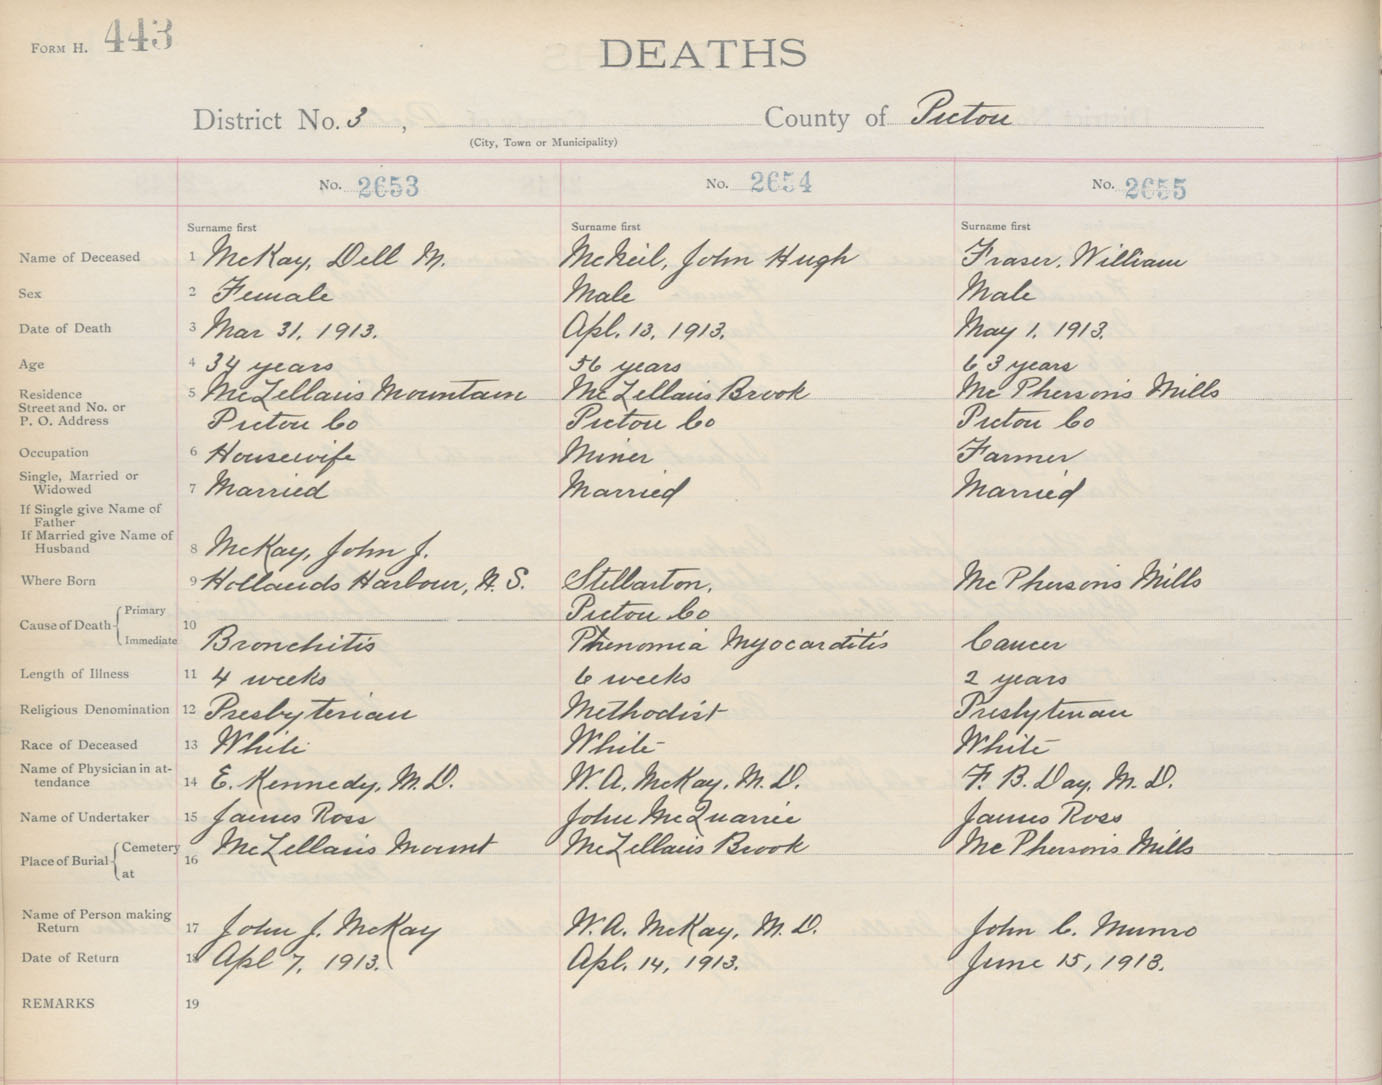 FORM H. 443
DEATHS
District No. 3 , County of Pictou
(City, Town or Municipality)
No. 2653 No. 2654 No. 2655
Surname first Surname first Surname first
Name of Deceased 1 McKay, Dell M. McNeil, John Hugh Fraser, William
Sex 2 Female Male Male
Date of Death 3 Mar 31, 1913. Apl. 13, 1913. May 1, 1913.
Age 4 34 years 56 years 63 years
Residence 5 McLellans Mountain McLellans Brook McPhersons Mills
Street and No. or
P. O. Address Pictou Co Pictou Co Pictou Co
Occupation 6 Housewife Miner Farmer
Single, Married or
Widowed 7 Married Married Married
If Single give Name of
Father
If Married give Name of
Husband 8 McKay, John J.
Where Born 9 Hollands Harbour, N. S. Stellarton, McPhersons Mills
Primary Pictou Co
Cause of Death 10
Immediate Bronchitis Phenomia Myocarditis Cancer
Length of Illness 11 4 weeks 6 weeks 2 years
Religious Denomination 12 Presbyterian Methodist Presbyterian
Race of Deceased 13 White White White
Name of Physician in at-
tendance 14 E. Kennedy, M. D. W. A. McKay, M. D. F. B. Day, M. D.
Name of Undertaker 15 James Ross John McQuarrie James Ross
Cemetery McLellans Mount McLellans Brook McPhersons Mills
Place of Burial 16
at
Name of Person making
Return 17 John J. McKay W. A. McKay, M. D. John C. Munro
Date of Return 18 Apl 7, 1913. Apl. 14, 1913. June 15, 1913.
REMARKS 19